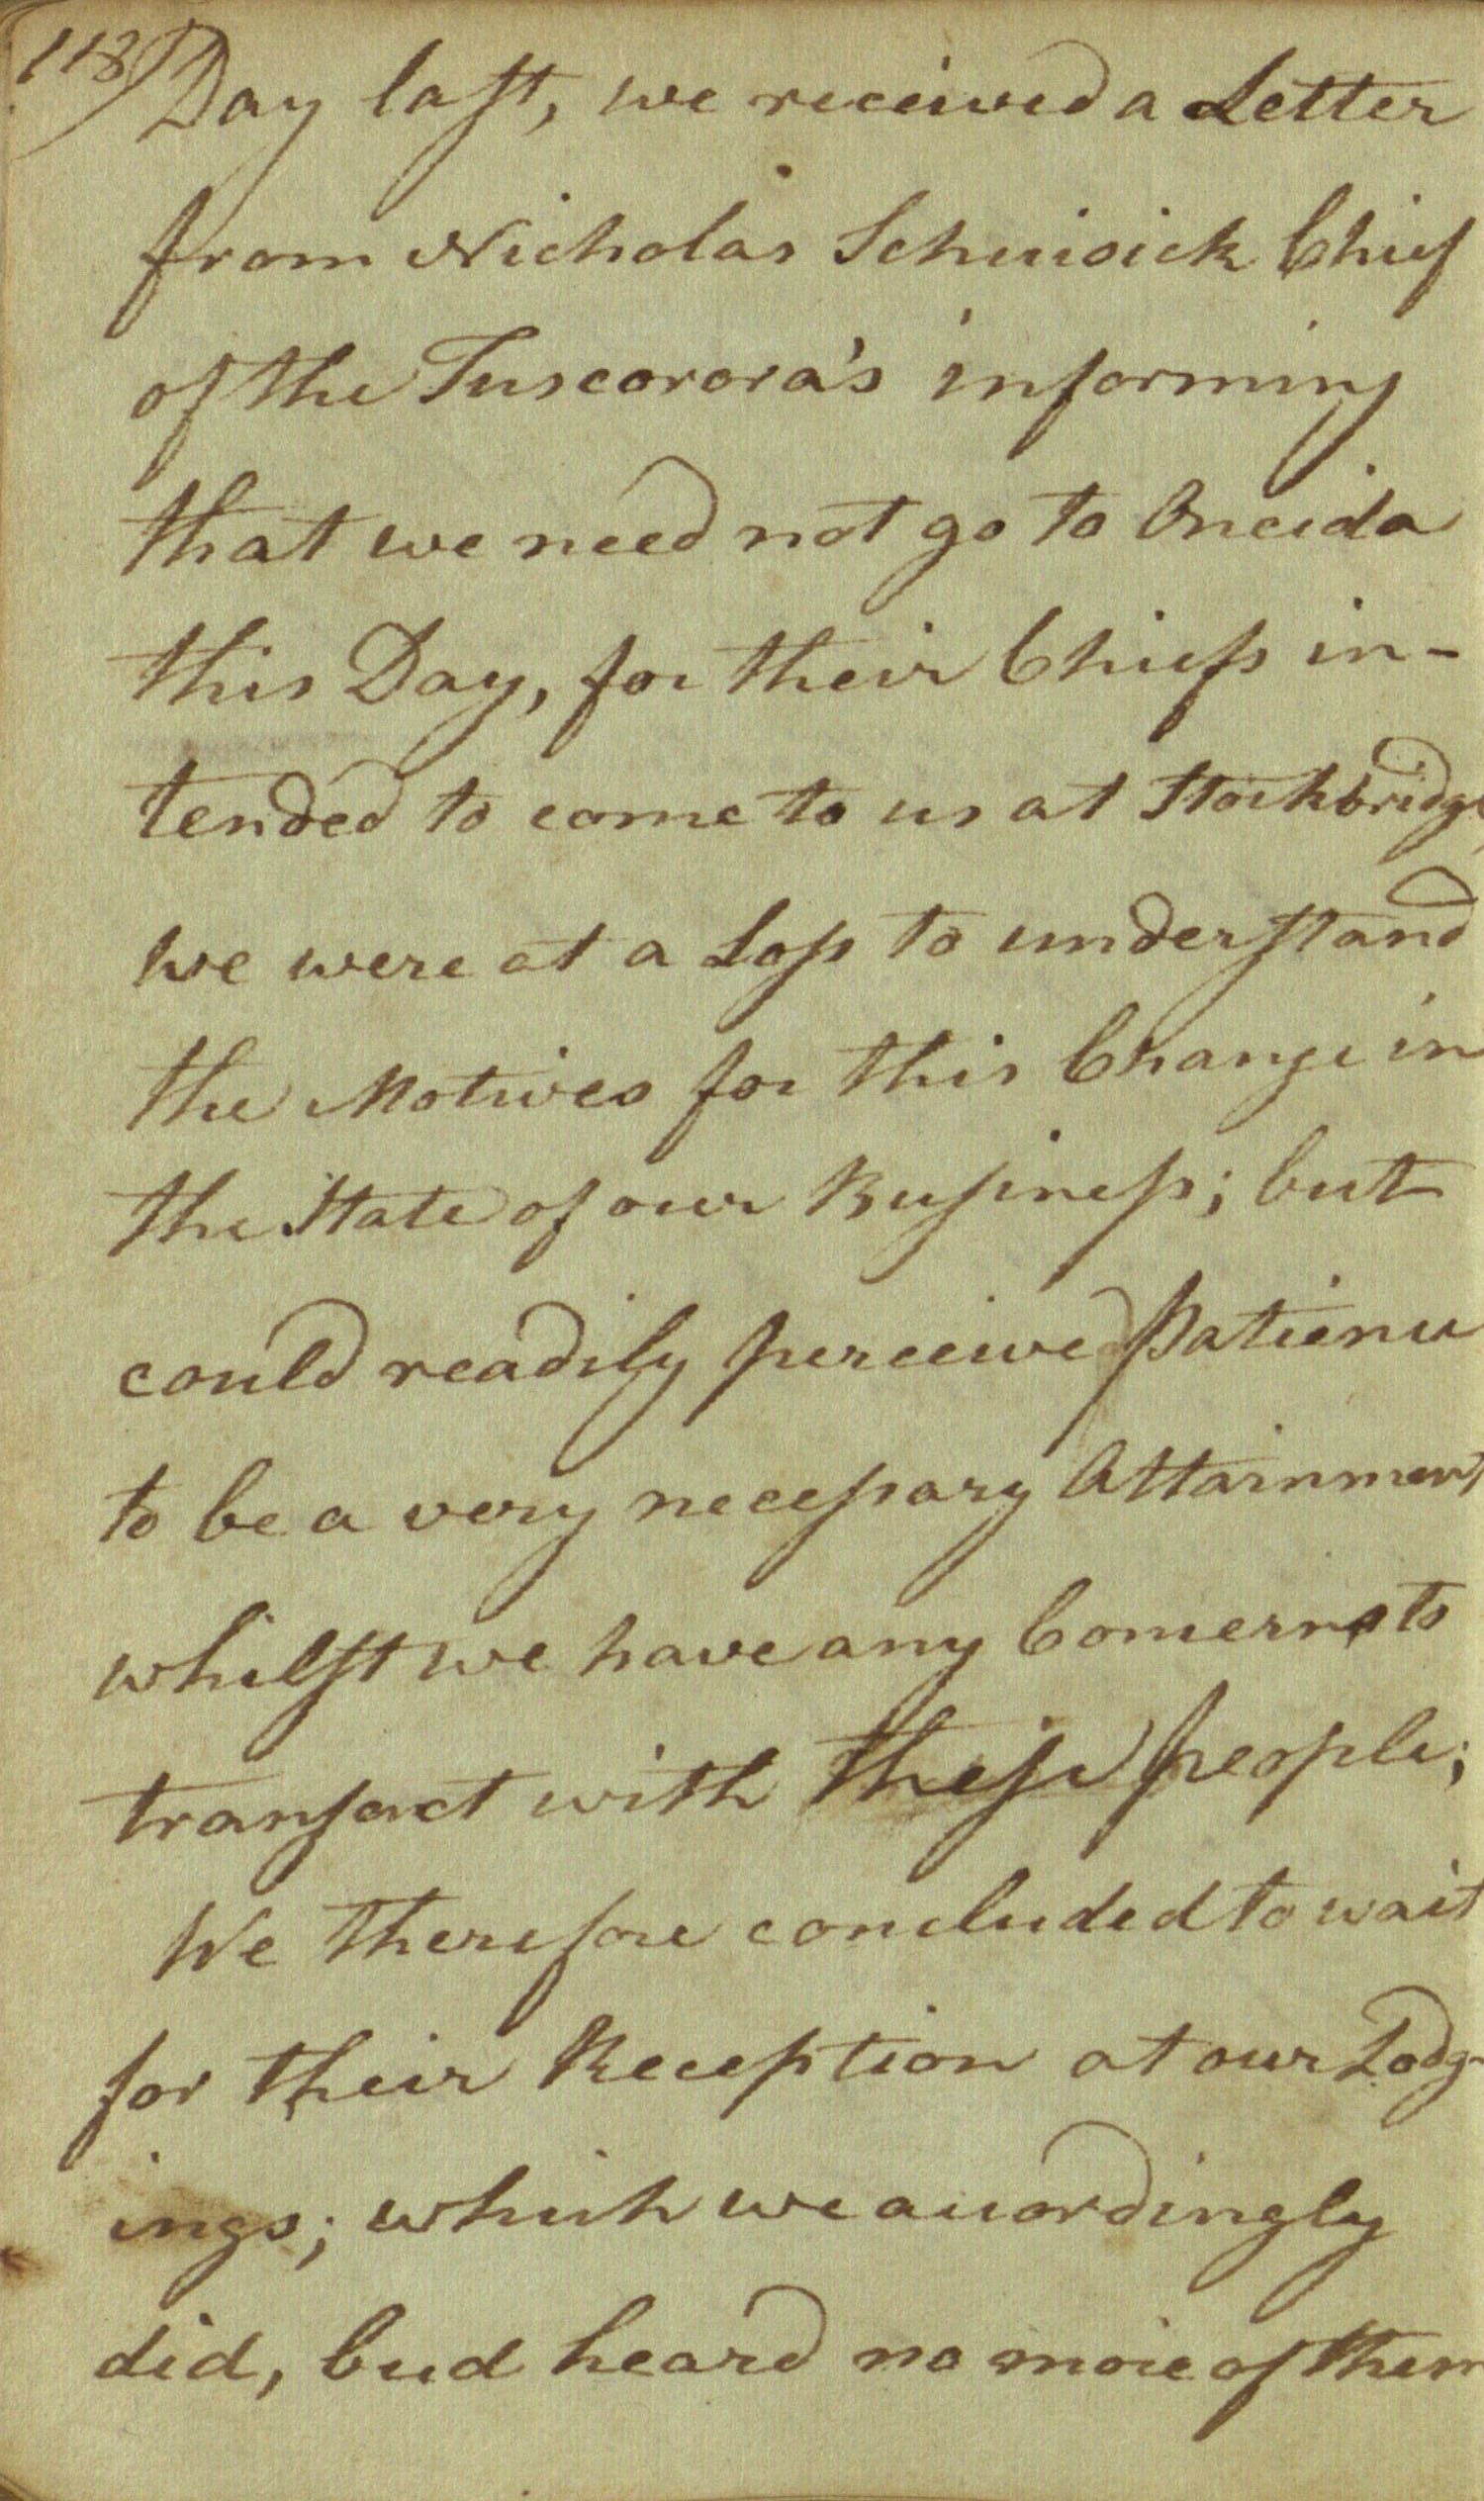 118) Day last, we received a Letter
from Nicholas Schuisick Chief
of the Tuscorora's informing
that we need not go to Oneida
this Day, for their Chiefs in-
tended to come to us at Stockbridge,
we were at a Loss to understand
the Motives for this Change in
the State of our Business; but
could readily perceive Patience
to be a very necessary Attainment
whilst we have any Concerns to
transact with these people;
We therefore concluded to wait
for their Reception at our Lodg-
ings; which we accordingly
did, bud heard no more of them